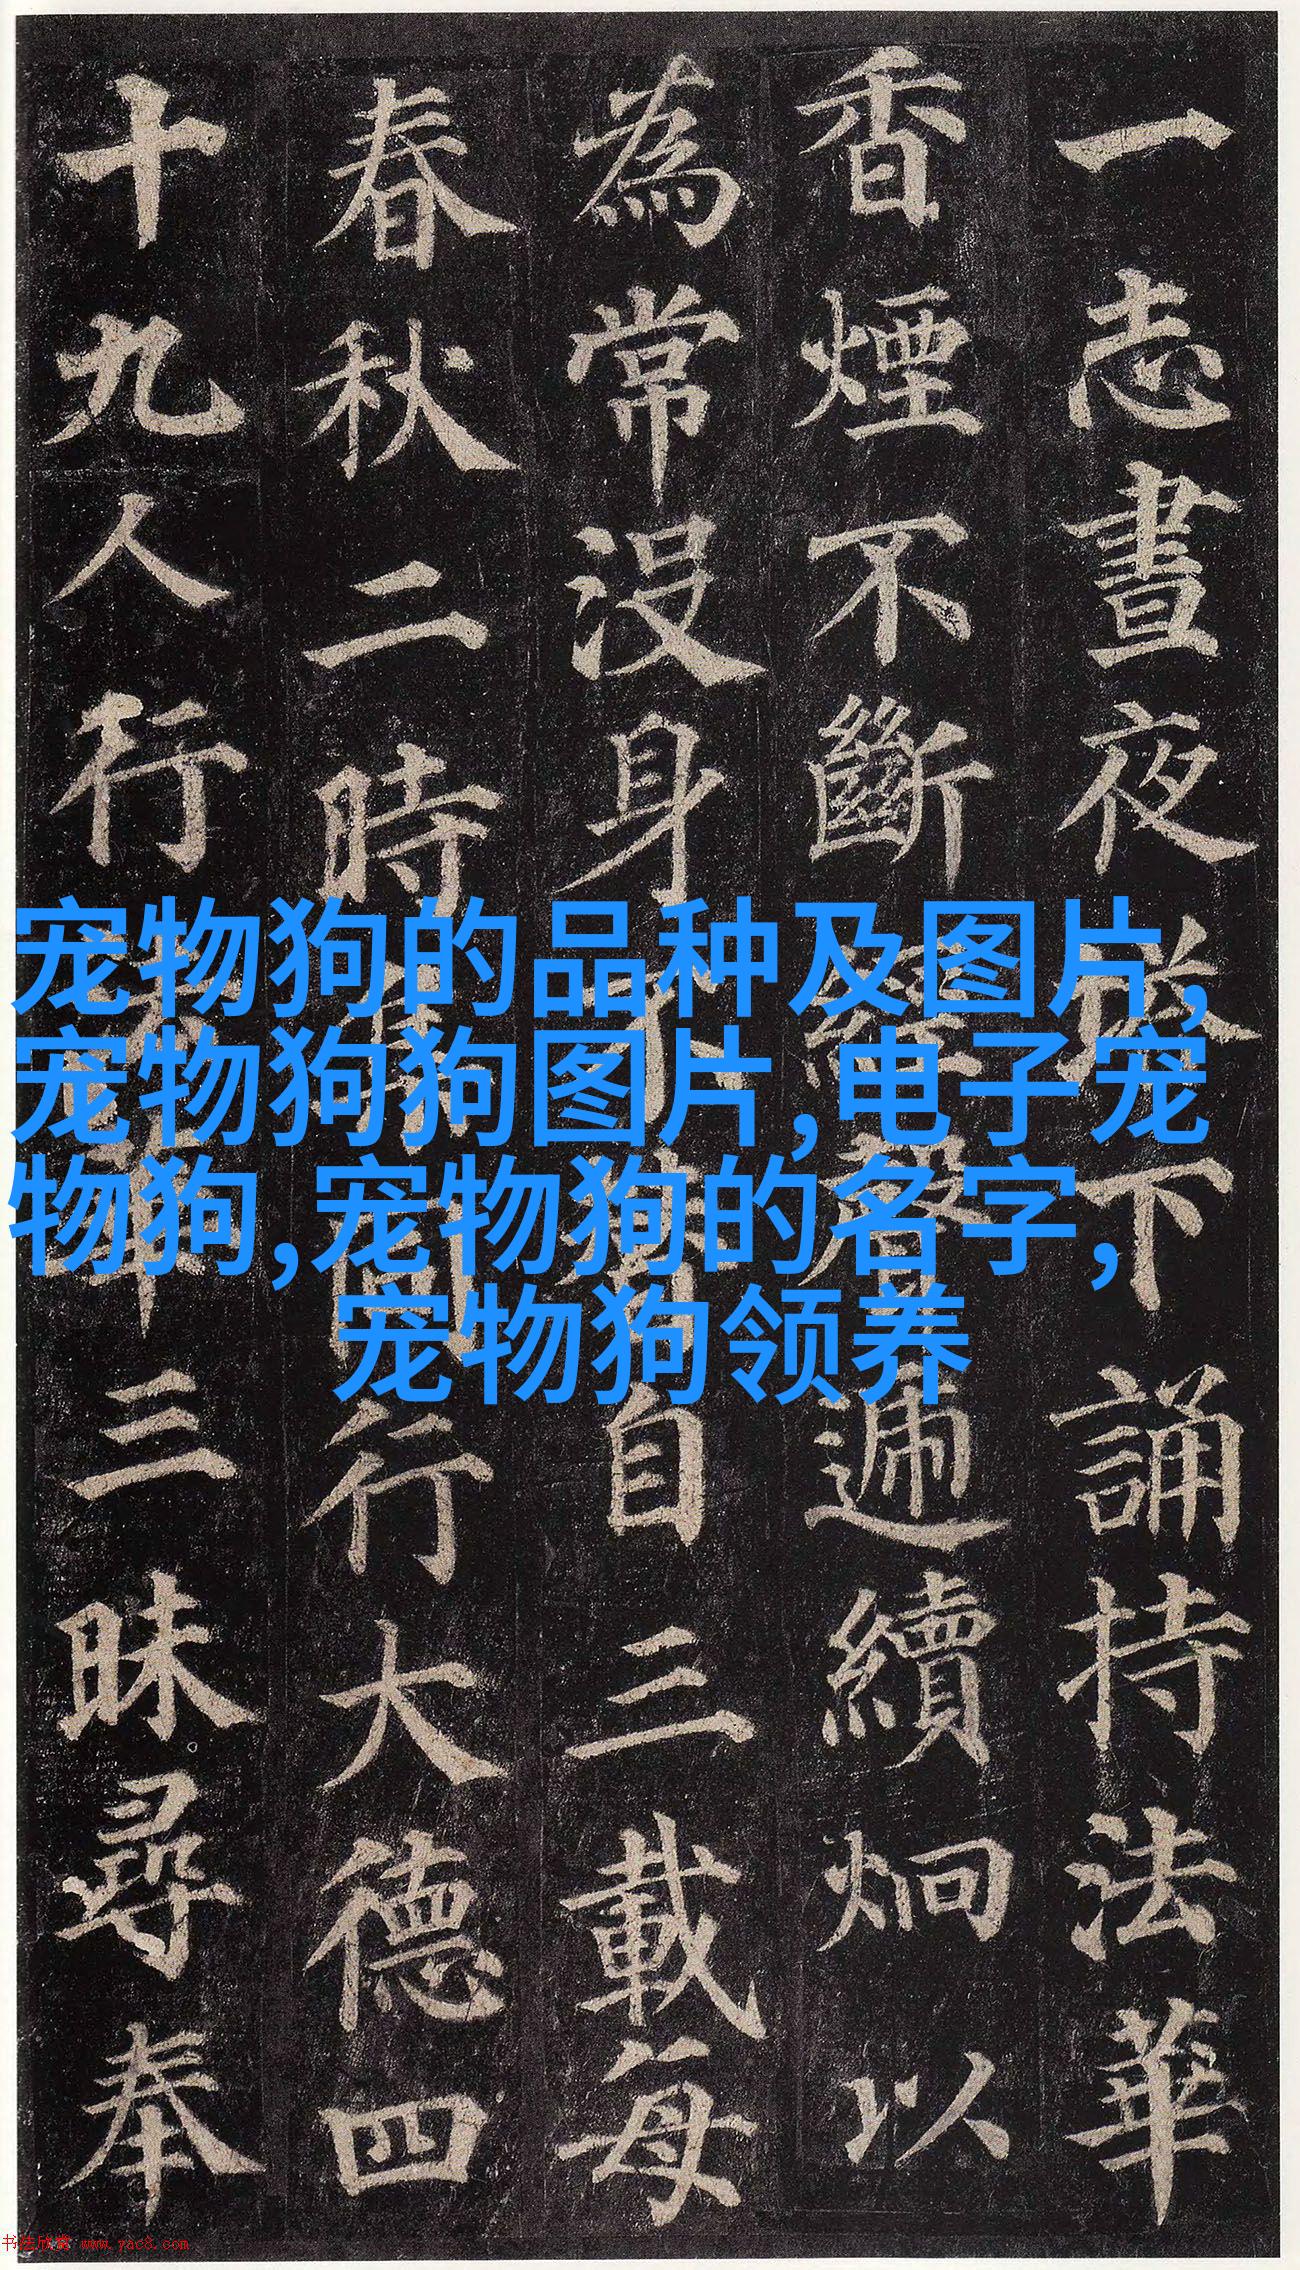 宠物狗的品种及图片,
宠物狗狗图片,电子宠
物狗,宠物狗的名字,
宠物狗领养
一志晝夜塔下誦持法華
香煙不斷經聲遞續炯以
為常沒身不替自三載每
春秋二時集同行大德四
十九人行法華三昧尋奉
书法欣赏 www.yac8.com